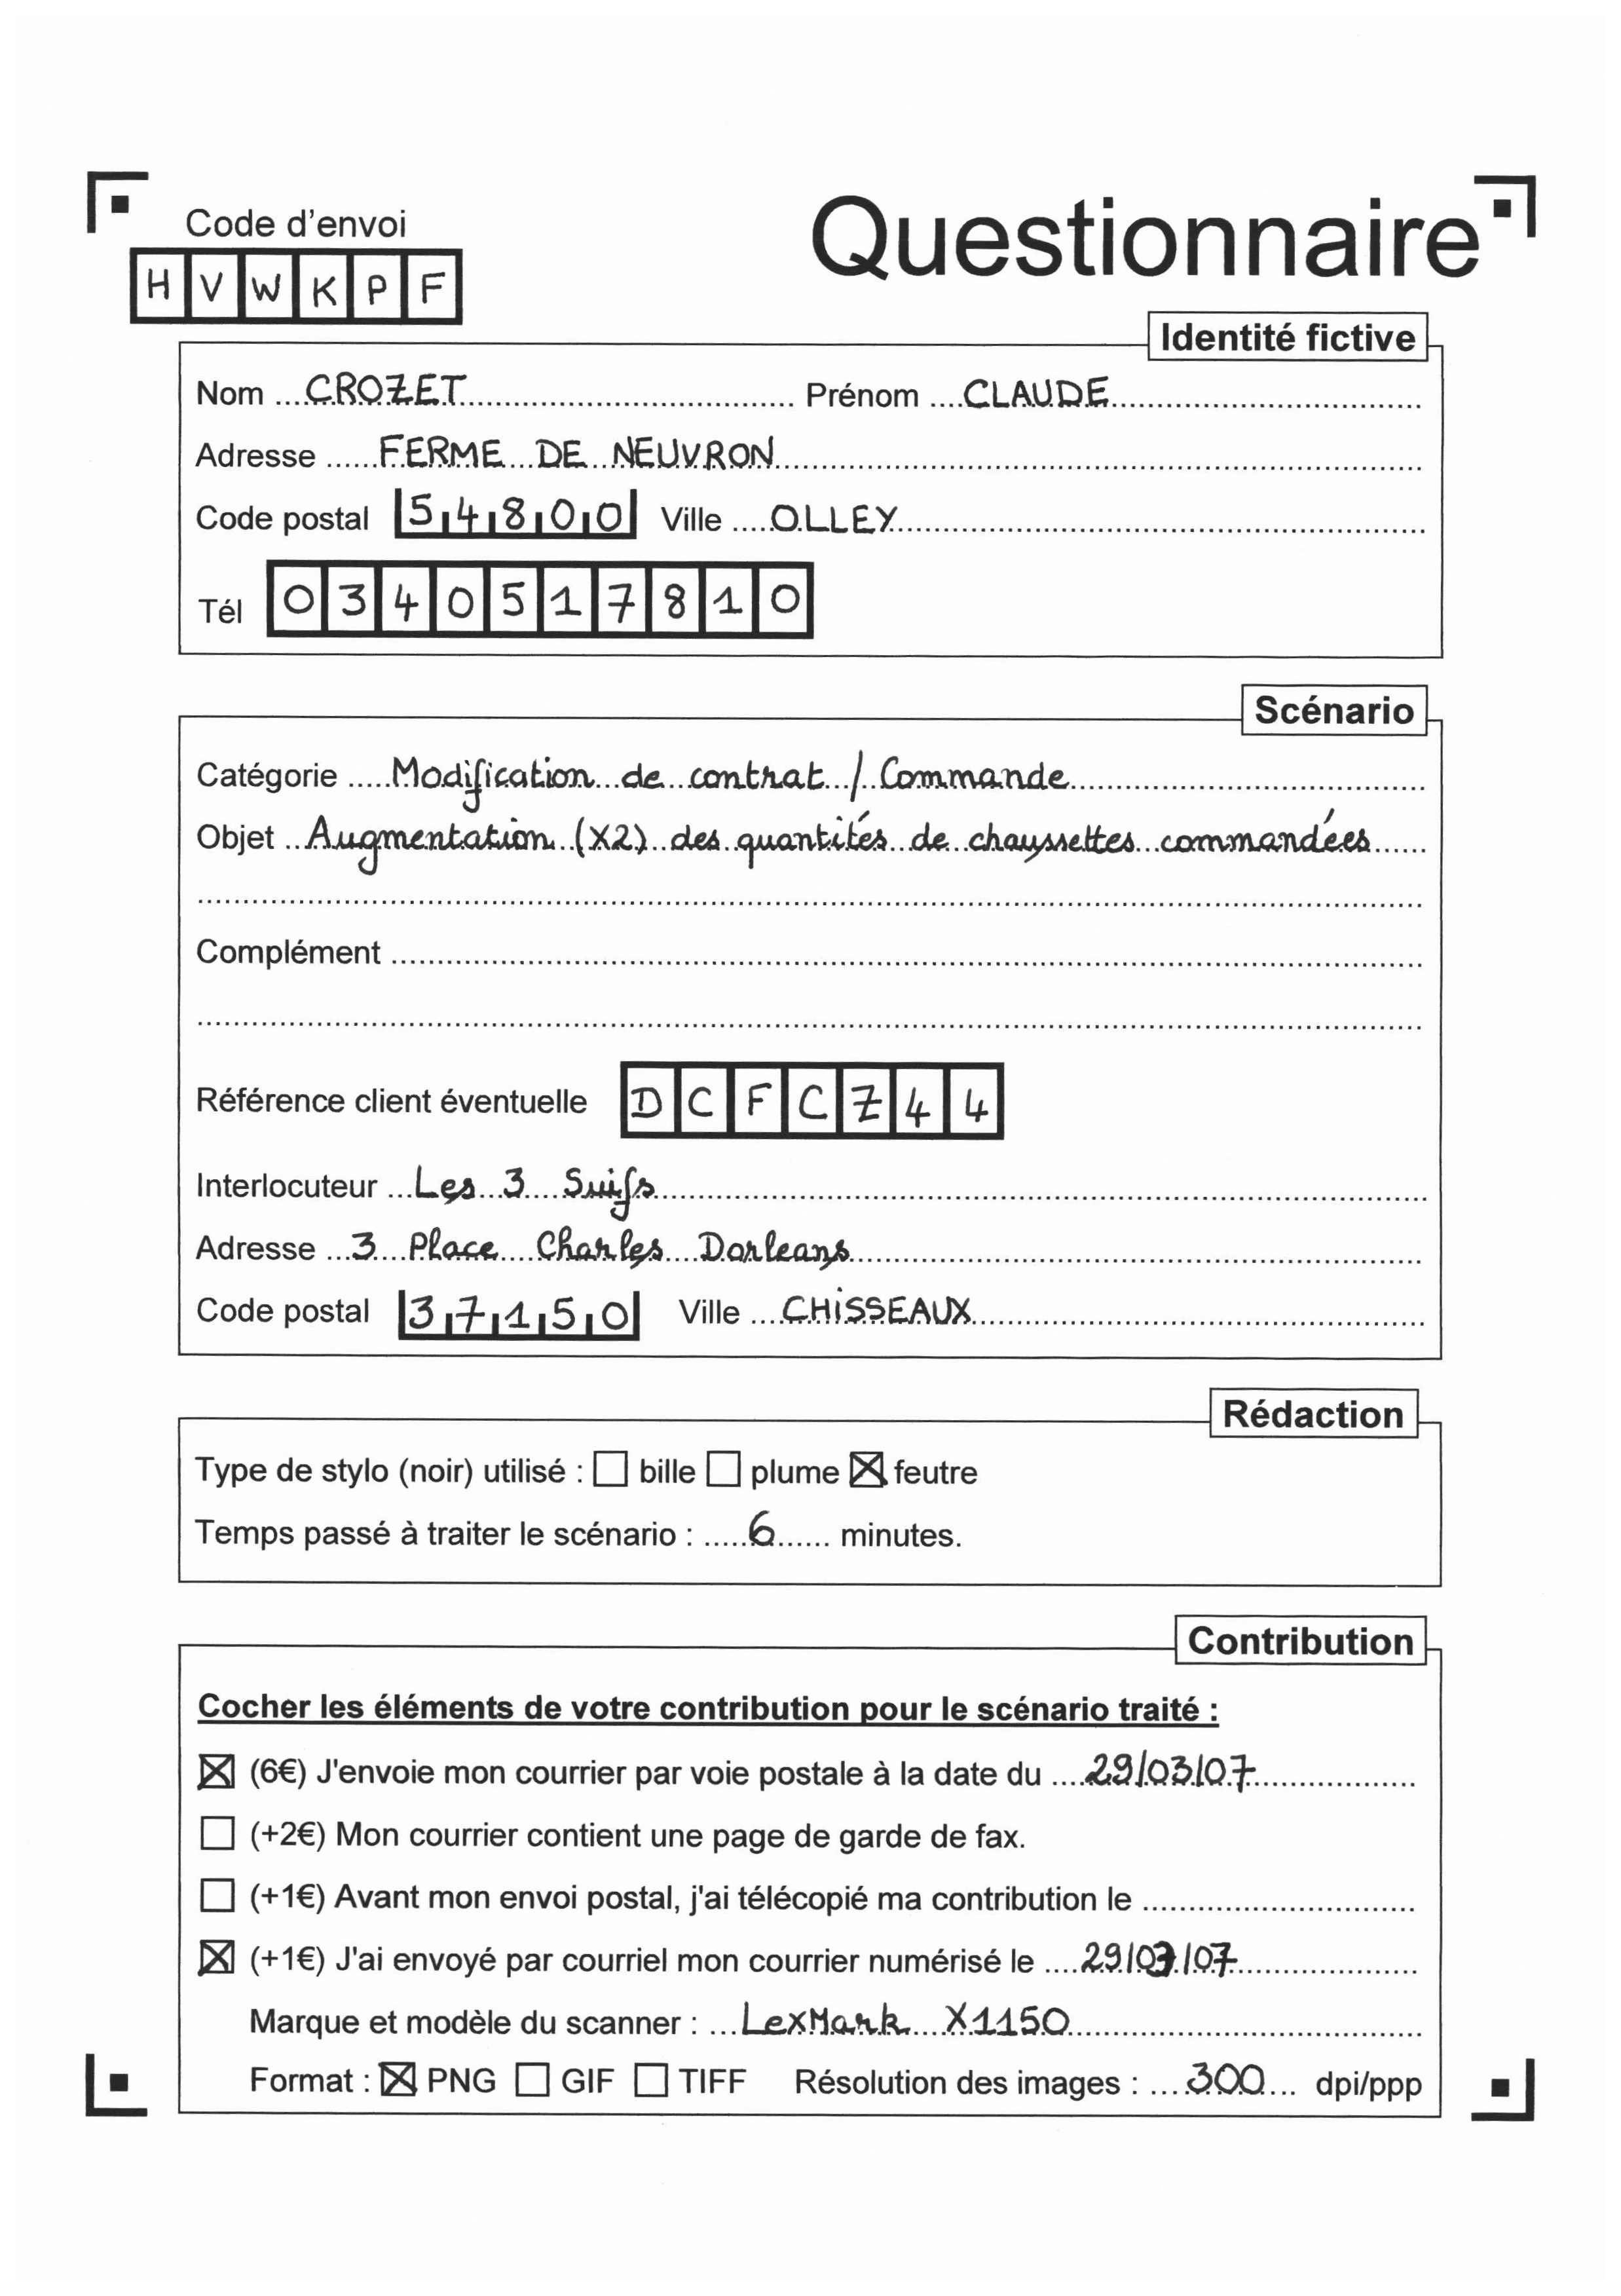 Code d'envoi
Questionnaire
H V W K P F
Identité fictive
Nom CROZET Prénom CLAUDE
Adresse FERME DE NEUVRON
Code postal 54800 Ville OLLEY
Tél 0340517810
Scénario
Catégorie Modification de contrat / Commande
Objet Augmentation (X2) des quantités de chaussettes commandées
Complément
Référence client éventuelle DCFCZ44
Interlocuteur Les 3 Suifs
Adresse 3 Place Charles Dorleans
Code postal 37150 Ville CHISSEAUX
Rédaction
Type de stylo (noir) utilisé : ☐ bille ☐ plume ☒ feutre
Temps passé à traiter le scénario : 6 minutes.
Contribution
Cocher les éléments de votre contribution pour le scénario traité :
☒ (6€) J'envoie mon courrier par voie postale à la date du 29/03/07
☐ (+2€) Mon courrier contient une page de garde de fax.
☐ (+1€) Avant mon envoi postal, j'ai télécopié ma contribution le
☒ (+1€) J'ai envoyé par courriel mon courrier numérisé le 29/03/07
Marque et modèle du scanner : LexMark X1150
Format : ☒ PNG ☐ GIF ☐ TIFF Résolution des images : 300 dpi/ppp